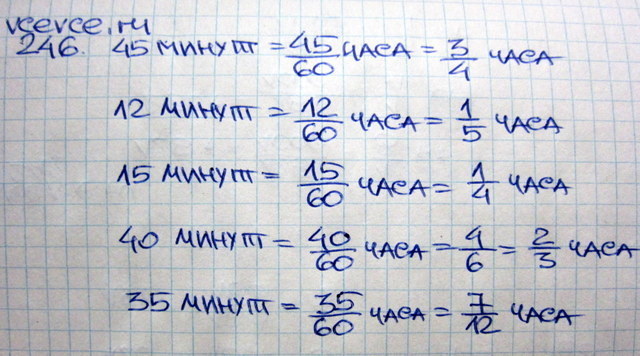 vcevce.ru
246. 45 минут = 45/60 часа = 3/4 часа
12 минут = 12/60 часа = 1/5 часа
15 минут = 15/60 часа = 1/4 часа
40 минут = 40/60 часа = 4/6 = 2/3 часа
35 минут = 35/60 часа = 7/12 часа